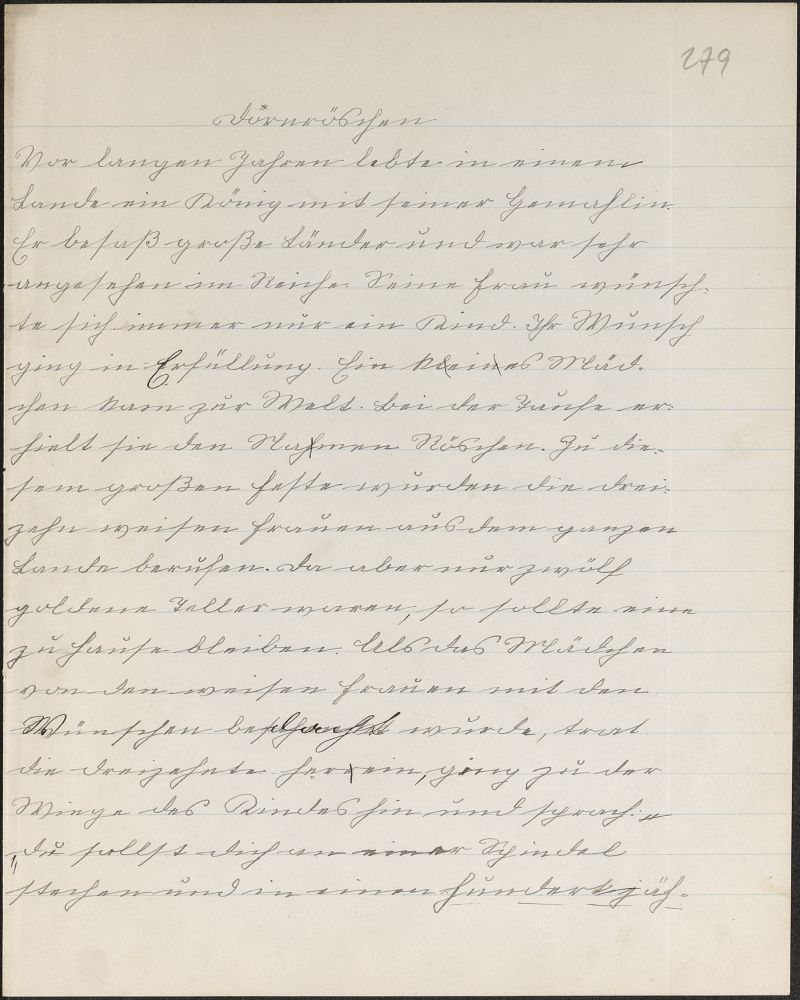 279
Dörnröschen
Vor langen Jahren lebte in einem
Lande ein König mit seiner Gemahlin.
Er besaß große Länder und war sehr
angesehen im Reiche. Seine Frau wünsch-
te sich immer nur ein Kind. Ihr Wunsch
ging in Erfüllung. Ein kleines Mäd-
chen kam zur Welt. Bei der Taufe er-
hielt sie den Nahmen Röschen. Zu die-
sem großen Feste wurden die drei-
zehn weisen Frauen aus dem ganzen
Lande berufen. Da aber nur zwölf
goldene Teller waren, so sollte eine
zu Hause bleiben. Als das Mädchen
von den weisen Frauen mit den
Wünschen beschenkt wurde, trat
die dreizehnte herein, ging zu der
Wiege des Kindes hin und sprach: „
„Du sollst dich an einer Spindel
stechen und in einen hundertjäh-